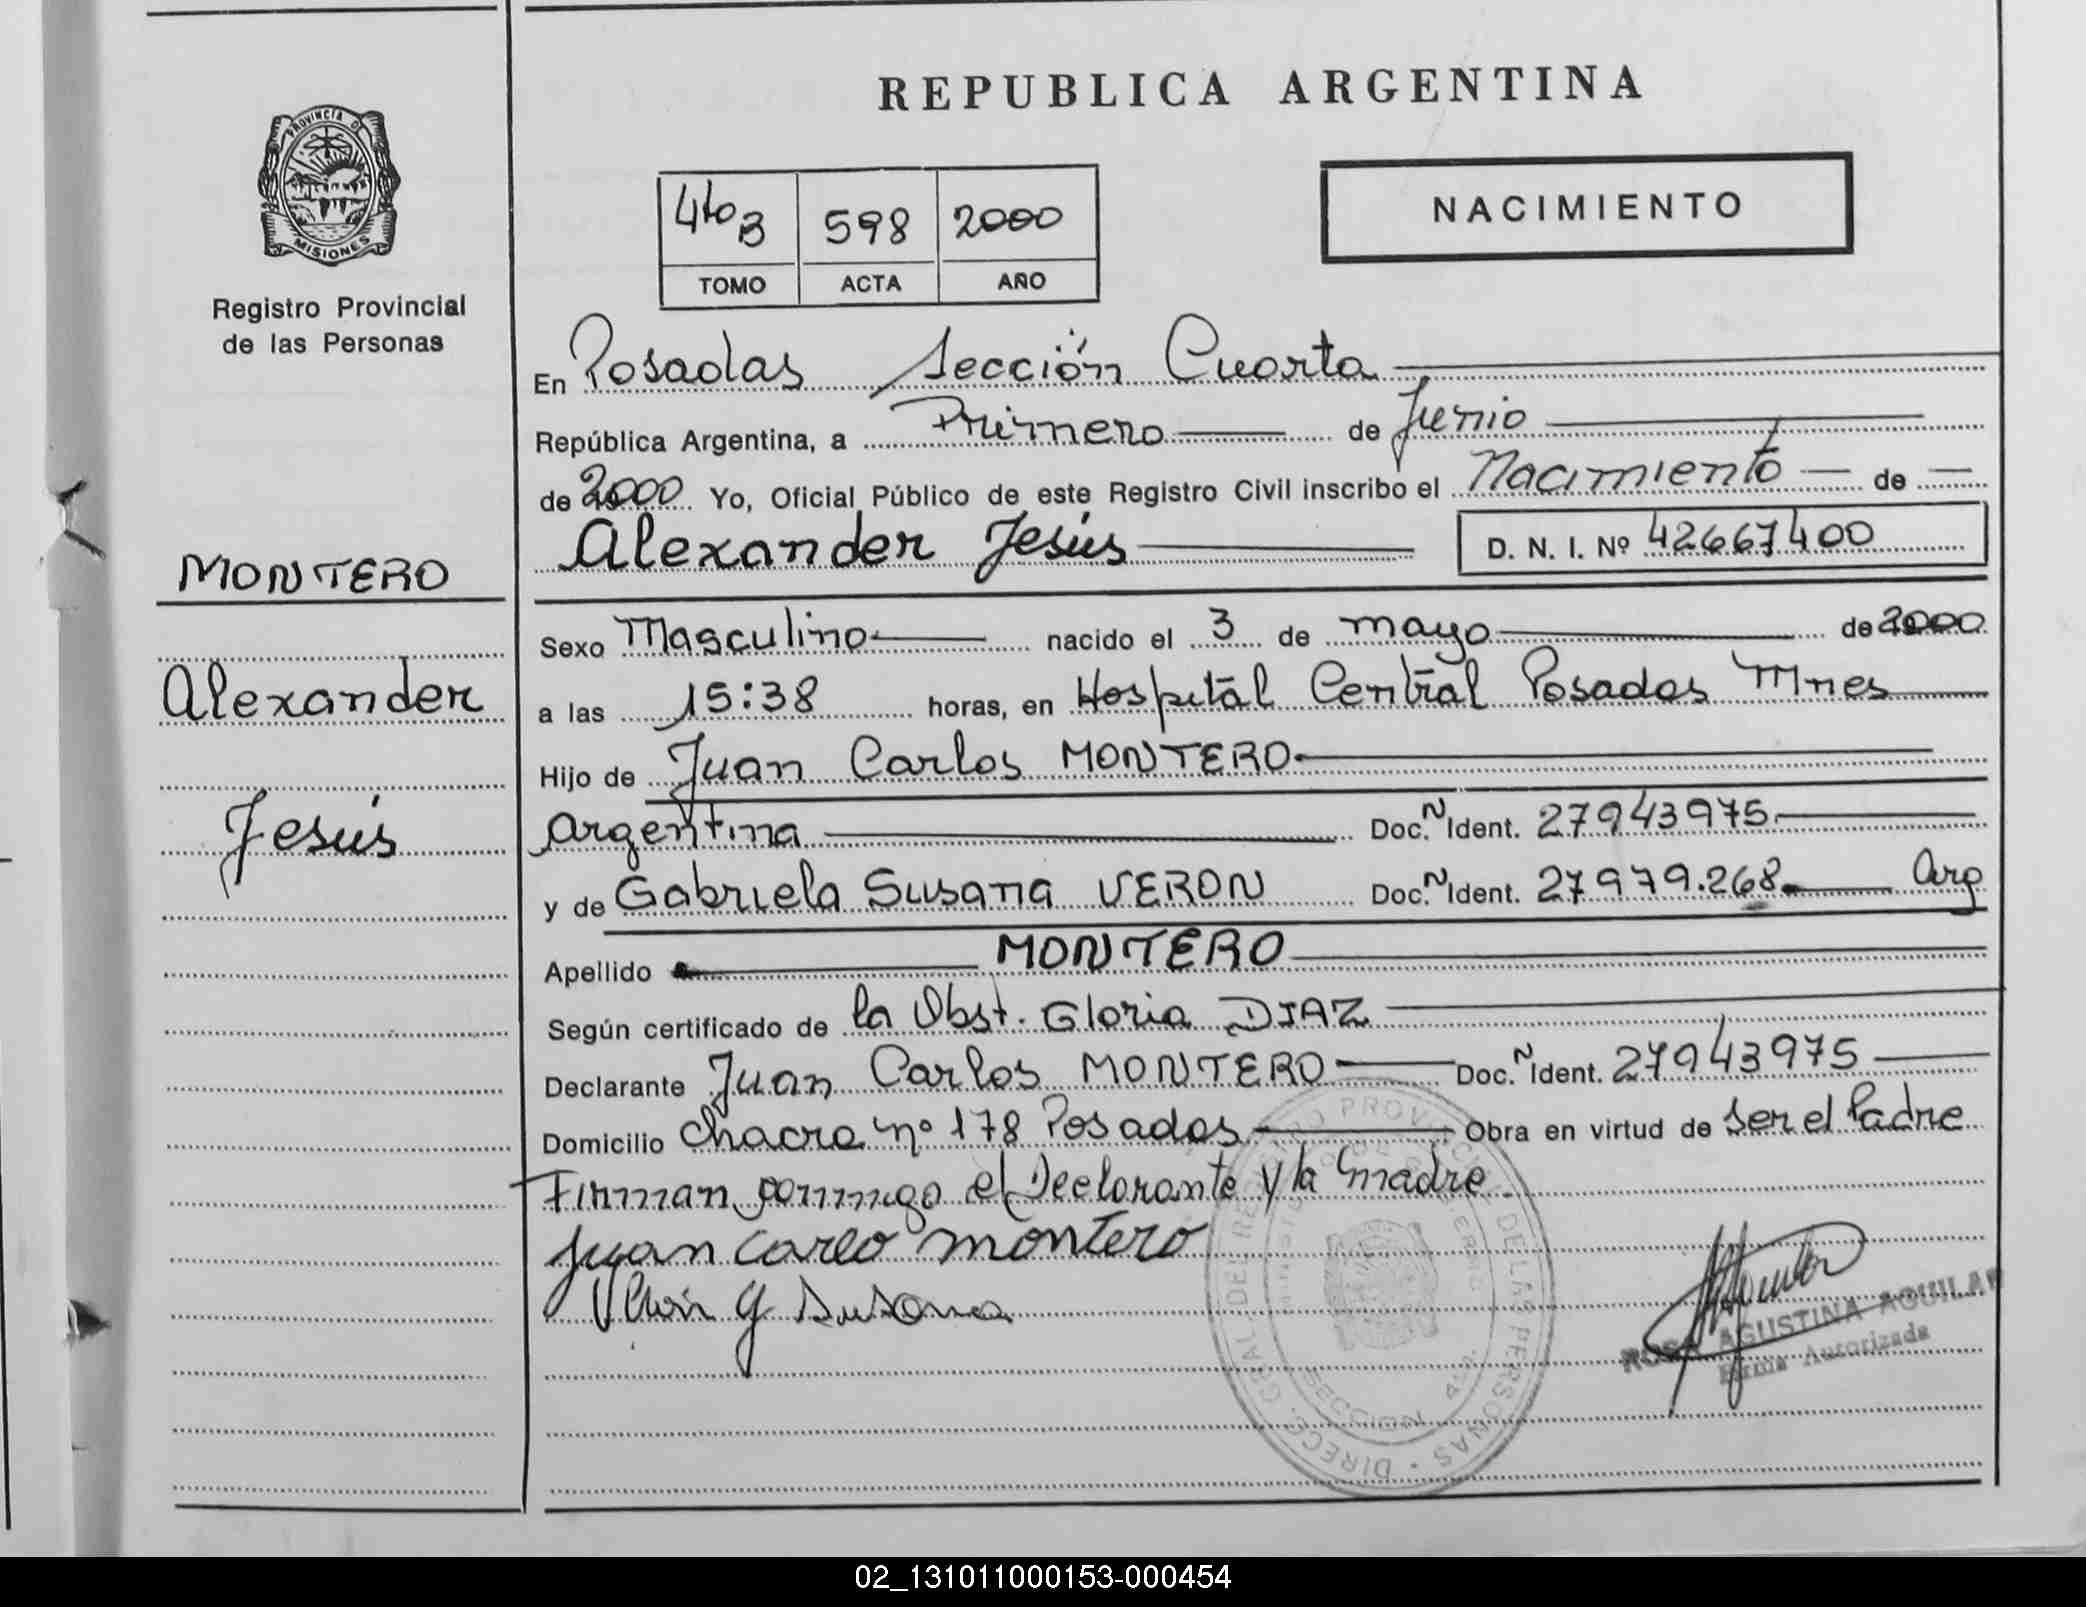 REPUBLICA ARGENTINA
PROVINCIA DE
MISIONES
Registro Provincial
de las Personas
4to B 598 2000
TOMO ACTA AÑO
NACIMIENTO
En Posadas Sección Cuarta
República Argentina, a Primero de Junio
de 2000 Yo, Oficial Público de este Registro Civil inscribo el Nacimiento de
Alexander Jesús D. N. I. Nº 42667400
MONTERO
Alexander
Jesús
Sexo Masculino nacido el 3 de mayo de 2000
a las 15:38 horas, en Hospital Central Posadas Mnes
Hijo de Juan Carlos MONTERO
Argentina Doc. N Ident. 27943975
y de Gabriela Susana VERON Doc. N Ident. 27979.268 Arg
Apellido MONTERO
Según certificado de la Obst. Gloria DIAZ
Declarante Juan Carlos MONTERO Doc. N Ident. 27943975
Domicilio Chacra nº 178 Posadas Obra en virtud de ser el Padre
Firman conmigo el Declarante y la madre
Juan Carlo montero
Veron G Susana
ROSA AGUSTINA AGUILAR
Firma Autorizada
DIRECC. GRAL. DEL REGISTRO PROVINCIAL DE LAS PERSONAS
SECCION 4ta.
02_131011000153-000454